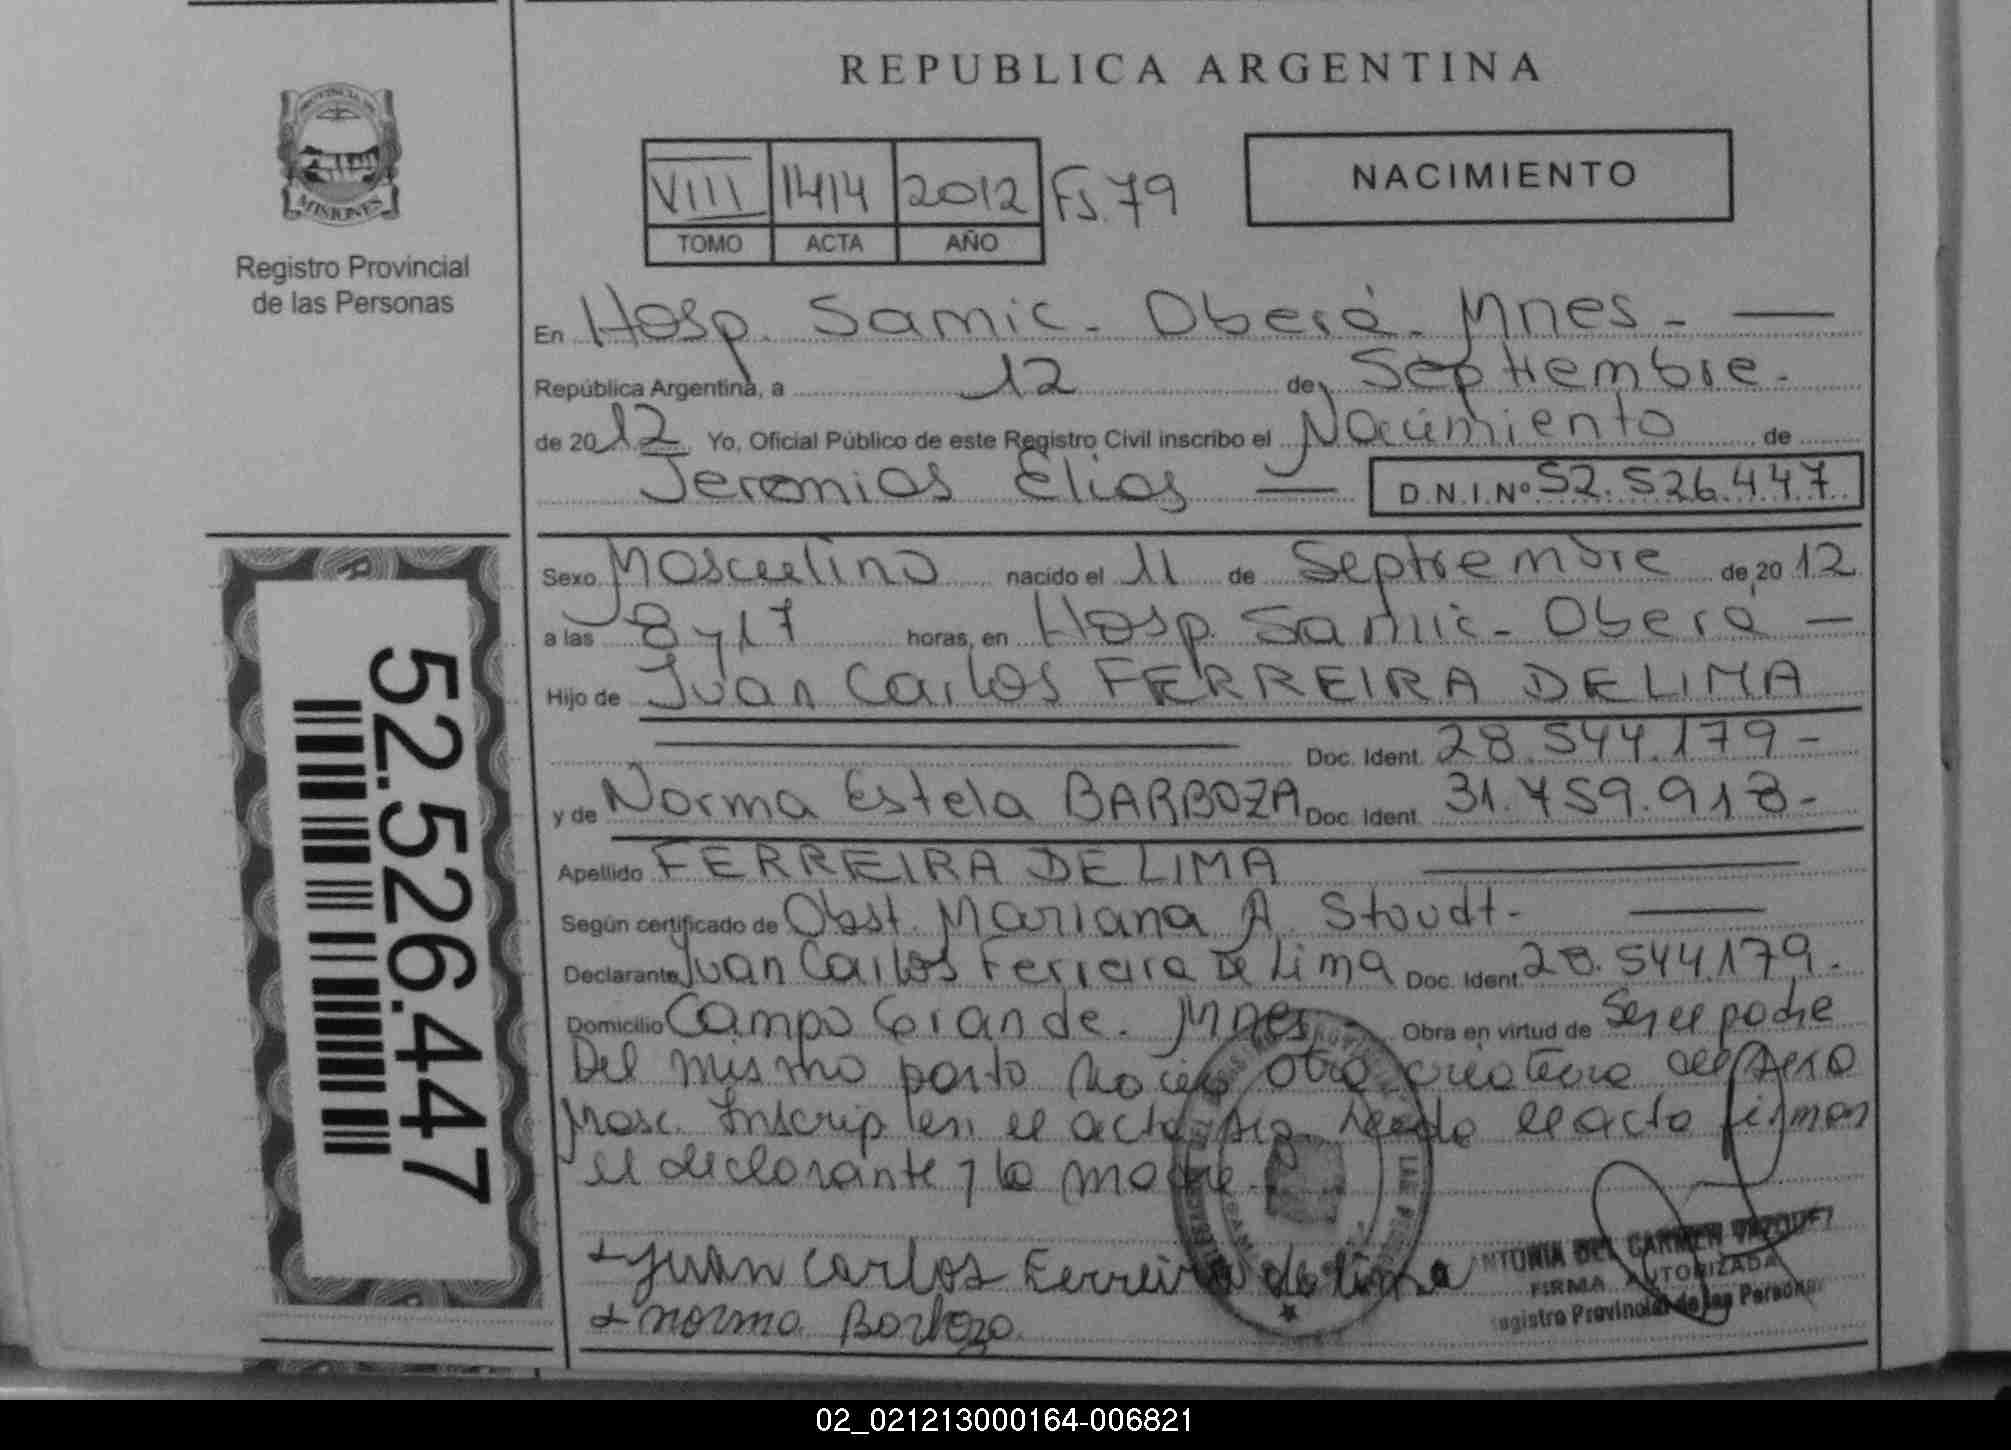 REPUBLICA ARGENTINA
PROVINCIA DE
MISIONES
Registro Provincial
de las Personas
VIII 1414 2012 Fs. 79
TOMO ACTA AÑO
NACIMIENTO
En Hosp. Samic - Oberá - Mnes -
República Argentina, a 12 de Septiembre -
de 2012 Yo, Oficial Público de este Registro Civil inscribo el Nacimiento de
Jeremias Elias D.N.I.Nº 52.526.447
Sexo Masculino nacido el 11 de Septiembre de 2012
a las 8 y 17 horas, en Hosp. Samic - Oberá -
Hijo de Juan Carlos FERREIRA DE LIMA
Doc. Ident. 28.544.179 -
y de Norma Estela BARBOZA Doc. Ident. 31.759.918 -
Apellido FERREIRA DE LIMA
Según certificado de Obst. Mariana A. Stoudt -
Declarante Juan Carlos Ferreira De Lima Doc. Ident. 28.544.179 -
Domicilio Campo Grande - Mnes - Obra en virtud de Ser el padre
Del mismo parto nació otra criatura del sexo
Masc. Inscrip en el acta sig. Leída el acta firman
el declarante y la madre -
+ Juan Carlos Ferreira de lima
+ norma Barboza
ANTONIA DEL CARMEN VAZQUEZ
FIRMA AUTORIZADA
Registro Provincial de las Personas
52.526.447
02_021213000164-006821